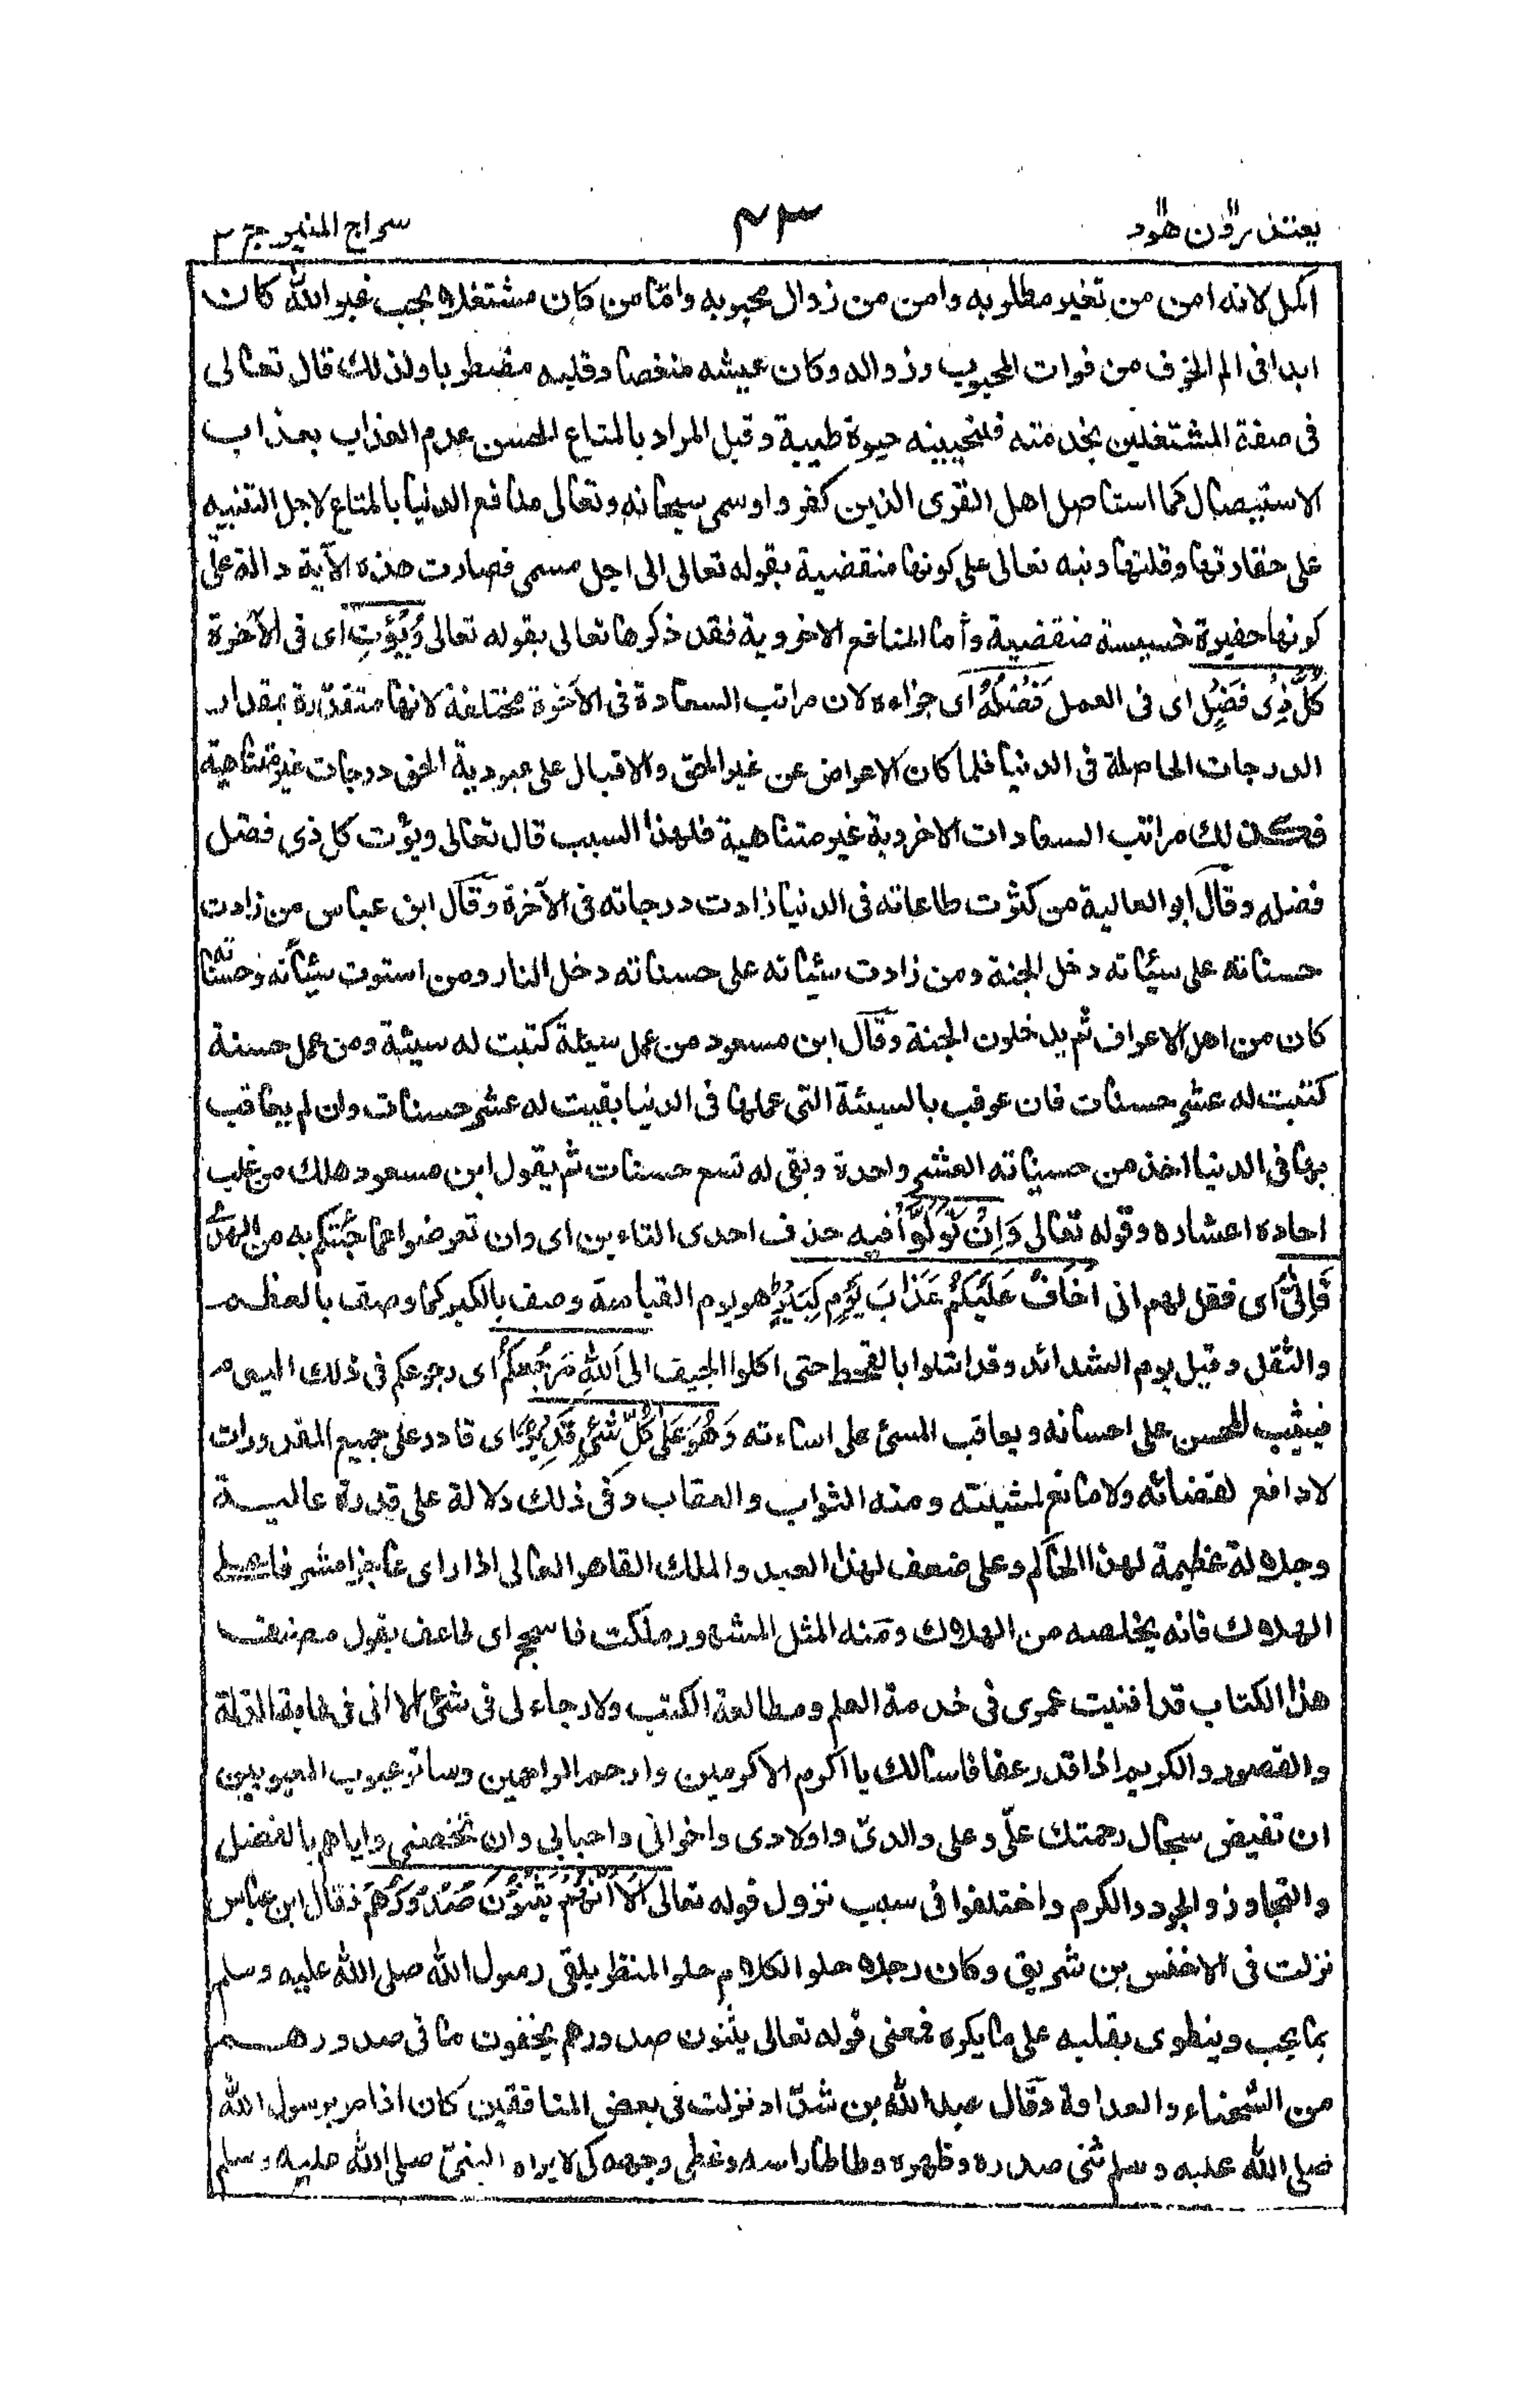 يعتذرون هود ٤٣ سراج المنير جز ٢
اكمل لانه امن من تغير مطلوبه وامن من زوال محبوبه واما من كان مشتغلا بحب غير الله كان
ابدا فى الم الخوف من فوات المحبوب وزواله وكان عيشه منغصا وقلبه مضطربا ولذلك قال تعالى
فى صفة المشتغلين بخدمته فلنحيينه حيوة طيبة وقيل المراد بالمتاع الحسن عدم العذاب بعذاب
الاستيصال كما استاصل اهل القرى الذين كفروا وسمى سبحانه وتعالى منافع الدنيا بالمتاع لاجل التنبيه
على حقارتها وقلتها ونبه تعالى على كونها منقضية بقوله تعالى الى اجل مسمى فصارت هذه الآية دالة على
كونها حقيرة خسيسة منقضية وأما المنافع الاخروية فقد ذكرها تعالى بقوله تعالى وَيُؤْتِ اى فى الآخرة
كُلَّ ذِى فَضْلٍ اى فى العمل فَضْلَهُ اى جزاءه لان مراتب السعادة فى الآخرة مختلفة لانها متقدرة بمقدار
الدرجات الحاصلة فى الدنيا فلما كان الاعراض عن غير الحق والاقبال على عبودية الحق درجات غير متناهية
فكذلك مراتب السعادات الاخروية غير متناهية فلهذا السبب قال تعالى ويؤت كل ذى فضل
فضله وقال ابو العالية من كثرت طاعاته فى الدنيا زادت درجاته فى الآخرة وقال ابن عباس من زادت
حسناته على سيئاته دخل الجنة ومن زادت سيئاته على حسناته دخل النار ومن استوت سيئاته وحسناته
كان من اهل الاعراف ثم يدخلون الجنة وقال ابن مسعود من عمل سيئة كتبت له سيئة ومن عمل حسنة
كتبت له عشر حسنات فان عوقب بالسيئة التى عملها فى الدنيا بقيت له عشر حسنات وان لم يعاقب
بها فى الدنيا اخذ من حسناته العشر واحدة وبقى له تسع حسنات ثم يقول ابن مسعود هلك من غلب
احاده اعشاره وقوله تعالى وَاِنْ تَوَلَّوْا فيه حذف احدى التاءين اى وان تعرضوا عما جئتكم به من الهدى
فَاِنِّىْ اى فقل لهم انى اَخَافُ عَلَيْكُمْ عَذَابَ يَوْمٍ كَبِيْرٍ هو يوم القيامة وصف بالكبر كما وصف بالعظم
والثقل وقيل يوم الشدائد وقد ابتلوا بالقحط حتى اكلوا الجيف الى اَللّٰهِ مَرْجِعُكُمْ اى رجوعكم فى ذلك اليوم
فيثيب المحسن على احسانه ويعاقب المسئ على اساءته وَهُوَ عَلٰى كُلِّ شَىْءٍ قَدِيْرٌ اى قادر على جميع المقدورات
لا دافع لقضائه ولا مانع لمشيئته ومنه الثواب والعقاب وفى ذلك دلالة على قدرة عالية
وجلالة عظيمة لهذا الحاكم وعلى ضعف لهذا العبد والملك القاهر العالى اذا راى عاجزا مشرفا على
الهلاك فانه يخلصه من الهلاك ومنه المثل المشهور ملكت فاسجح اى فاعف يقول مصنف
هذا الكتاب قد افنيت عمرى فى خدمة العلم ومطالعة الكتب ولا رجاء لى فى شئ الا انى فى غاية الذلة
والقصور والكريم اذا قدر عفا فاسالك يا اكرم الاكرمين وارحم الراحمين وساتر عيوب المعيوبين
ان تفيض سجال رحمتك علىّ وعلى والدىّ واولادى واخوانى واحبابى وان تخصنى واياهم بالفضل
والتجاوز والجود والكرم واختلفوا فى سبب نزول قوله تعالى اَلَا اِنَّهُمْ يَثْنُوْنَ صُدُوْرَهُمْ فقال ابن عباس
نزلت فى الاخنس بن شريق وكان رجلا حلو الكلام حلو المنظر يلقى رسول الله صلى الله عليه وسلم
بما يحب وينطوى بقلبه على ما يكره فمعنى قوله تعالى يثنون صدورهم يخفون ما فى صدورهم
من الشحناء والعداوة وقال عبد الله بن شدّاد نزلت فى بعض المنافقين كان اذا مر برسول الله
صلى الله عليه وسلم ثنى صدره وظهره وطاطا راسه وغطى وجهه كى لا يراه النبىّ صلى الله عليه وسلم